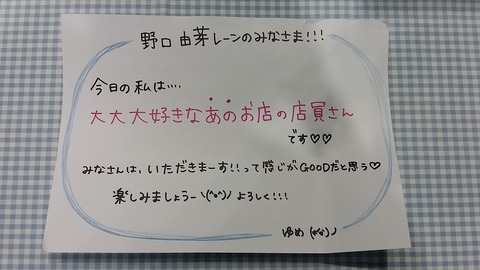 野口 由芽レーンのみなさま!!!
今日の私は‥‥
大大大好きなあのお店の店員さん
です♡♡
みなさんは、いただきまーす!!って感じがGOODだと思う♡
楽しみましょうー\(^o^)ノ よろしく!!!
ゆめ